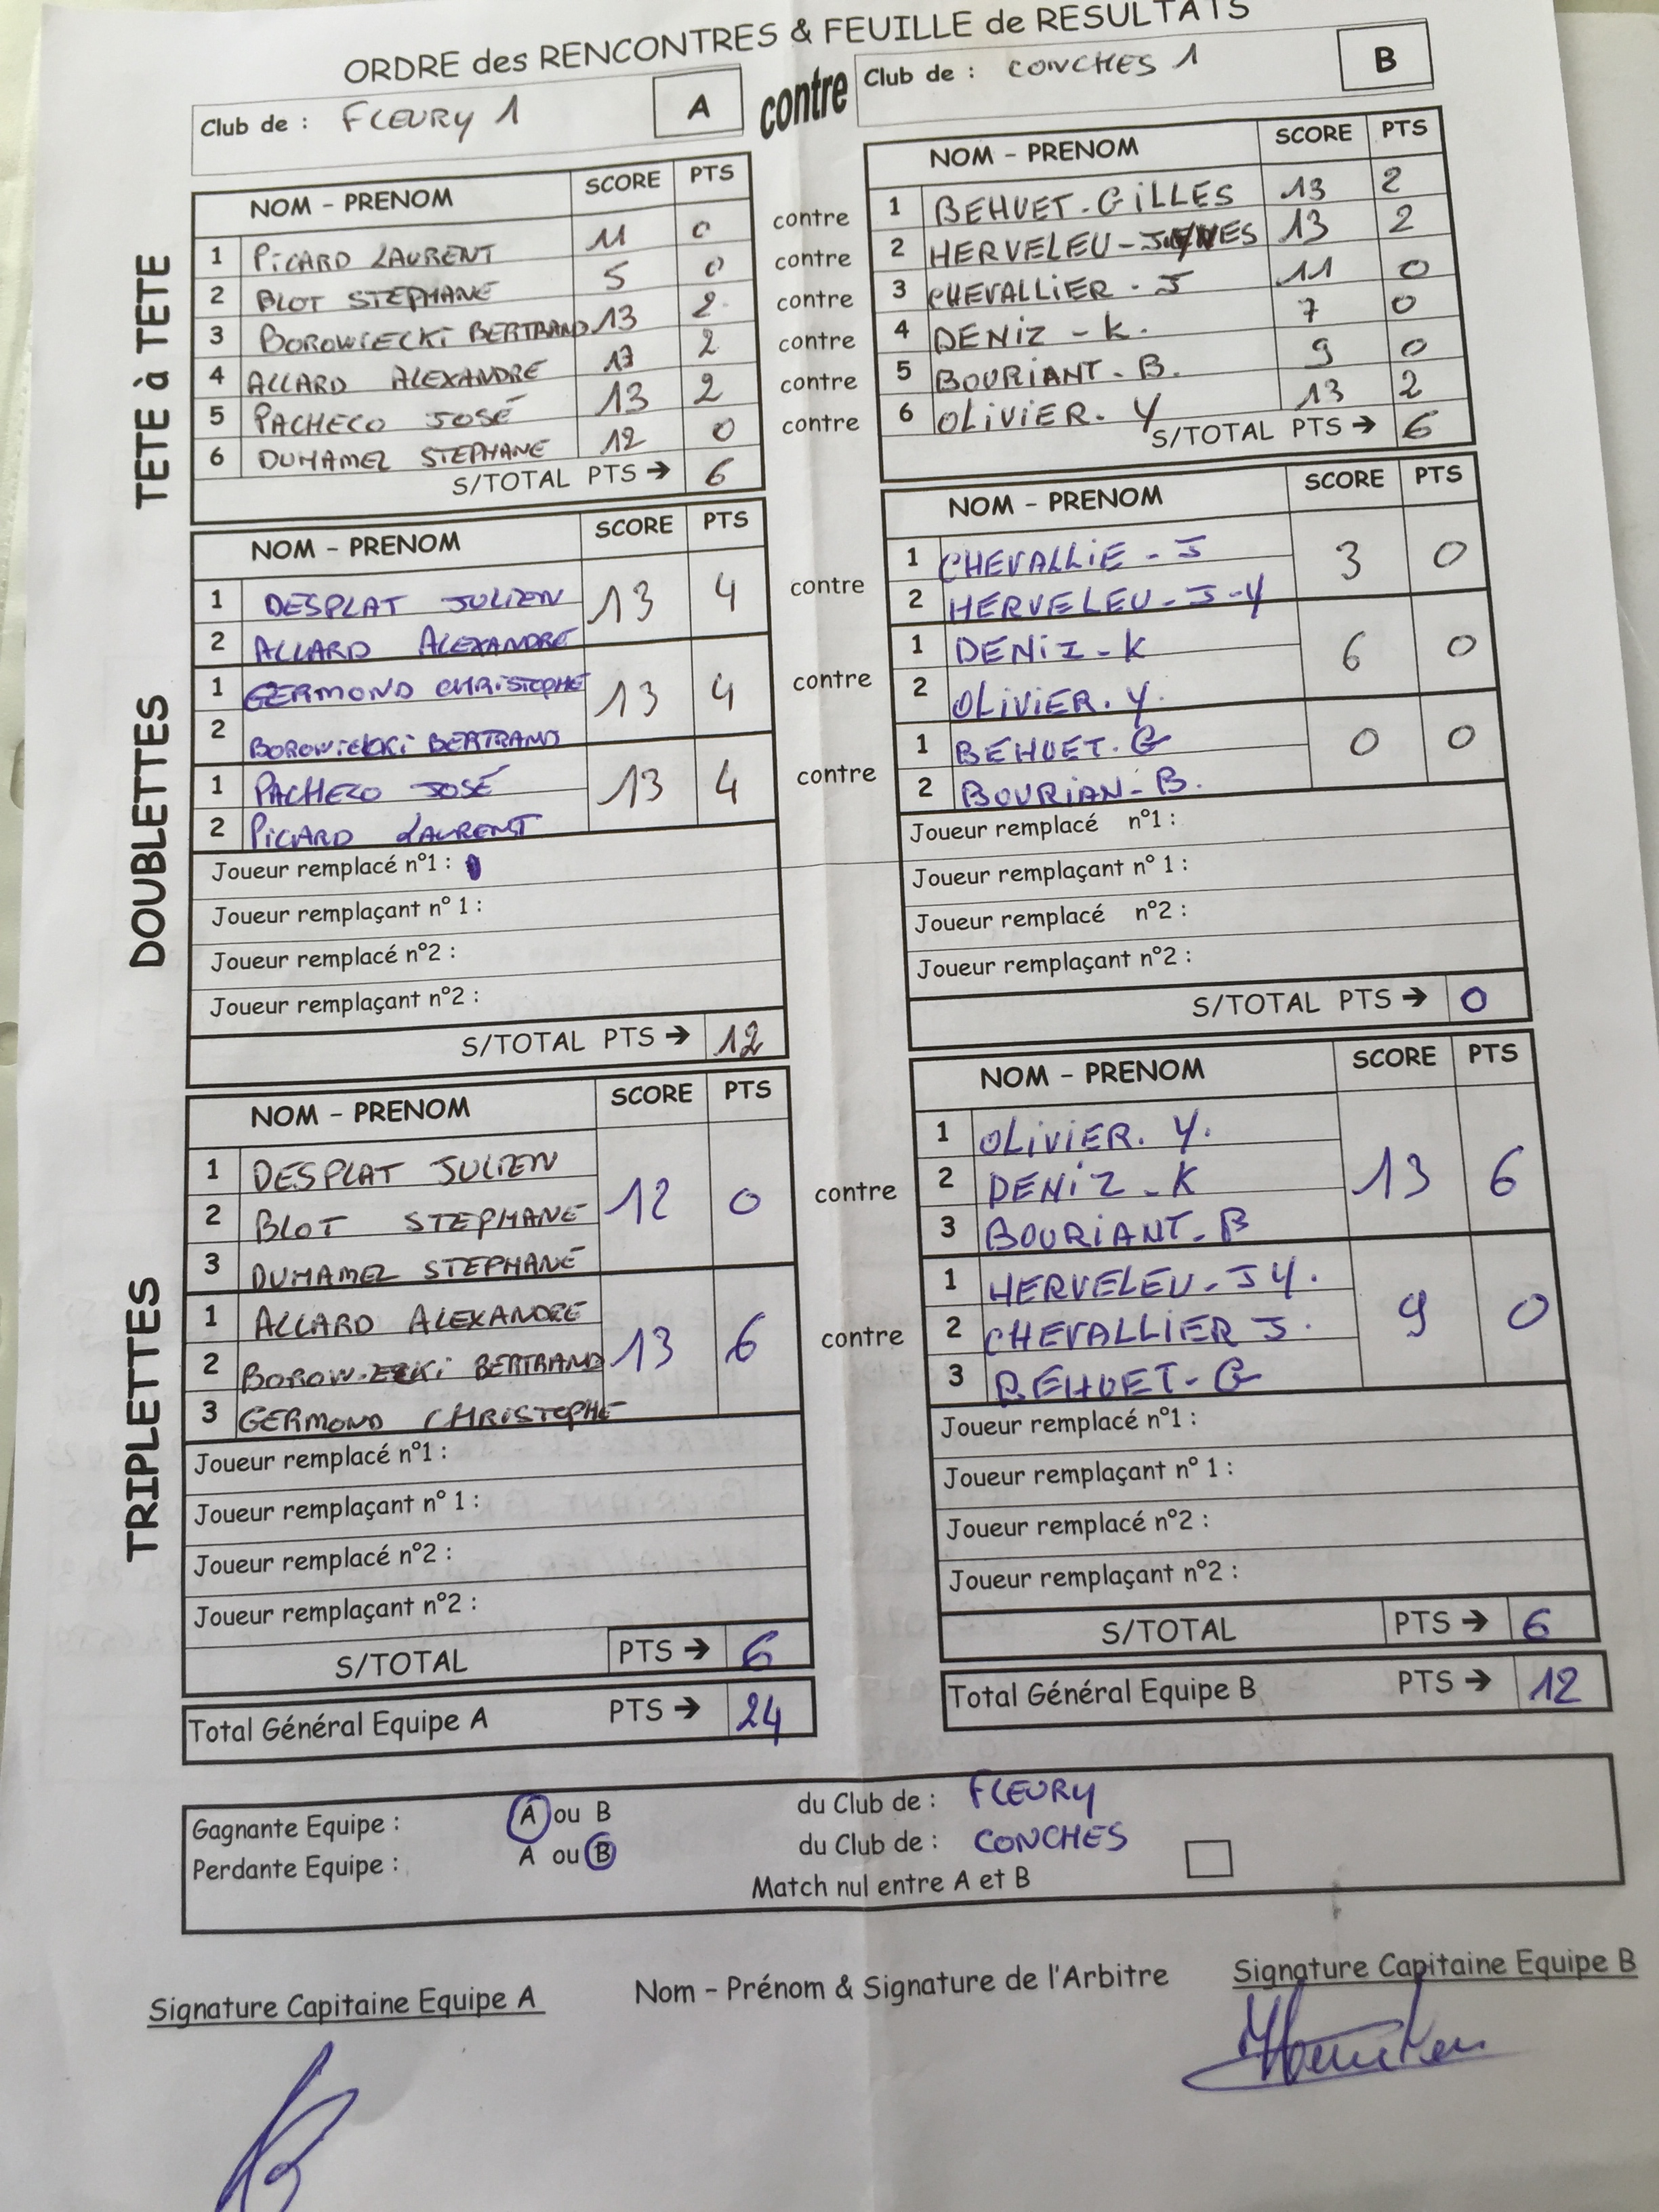 ORDRE des RENCONTRES & FEUILLE de RESULTATS
Club de : FLEURY 1 A contre Club de : CONCHES 1 B
TETE à TETE
NOM - PRENOM SCORE PTS NOM - PRENOM SCORE PTS
1 PICARD LAURENT 11 0 contre 1 BEHUET - GILLES 13 2
2 BLOT STEPHANE 5 0 contre 2 HERVELEU - 13 2
3 BOROWIECKI BERTRAND 13 2 contre 3 CHEVALLIER - J 11 0
4 ALLARD ALEXANDRE 13 2 contre 4 DENIZ - K. 7 0
5 PACHECO JOSÉ 13 2 contre 5 BOURIANT - B. 9 0
6 DUHAMEL STEPHANE 12 0 contre 6 OLIVIER. Y 13 2
S/TOTAL PTS → 6 S/TOTAL PTS → 6
DOUBLETTES
NOM - PRENOM SCORE PTS NOM - PRENOM SCORE PTS
1 DESPLAT JULIEN 13 4 contre 1 CHEVALLIE - J 3 0
2 ALLARD ALEXANDRE 2 HERVELEU - J-Y
1 GERMOND CHRISTOPHE 13 4 contre 1 DENIZ - K 6 0
2 BOROWIECKI BERTRAND 2 OLIVIER. Y.
1 PACHECO JOSÉ 13 4 contre 1 BEHUET. G 0 0
2 PICARD LAURENT 2 BOURIAN - B.
Joueur remplacé n°1 : Joueur remplacé n°1 :
Joueur remplaçant n° 1 : Joueur remplaçant n° 1 :
Joueur remplacé n°2 : Joueur remplacé n°2 :
Joueur remplaçant n°2 : Joueur remplaçant n°2 :
S/TOTAL PTS → 12 S/TOTAL PTS → 0
TRIPLETTES
NOM - PRENOM SCORE PTS NOM - PRENOM SCORE PTS
1 DESPLAT JULIEN 12 0 contre 1 OLIVIER. Y. 13 6
2 BLOT STEPHANE 2 DENIZ - K
3 DUHAMEL STEPHANE 3 BOURIANT - B
1 ALLARD ALEXANDRE 13 6 contre 1 HERVELEU - JY. 9 0
2 BOROWIECKI BERTRAND 2 CHEVALLIER J.
3 GERMOND CHRISTOPHE 3 BEHUET - G
Joueur remplacé n°1 : Joueur remplacé n°1 :
Joueur remplaçant n° 1 : Joueur remplaçant n° 1 :
Joueur remplacé n°2 : Joueur remplacé n°2 :
Joueur remplaçant n°2 : Joueur remplaçant n°2 :
S/TOTAL PTS → 6 S/TOTAL PTS → 6
Total Général Equipe A PTS → 24 Total Général Equipe B PTS → 12
Gagnante Equipe : A ou B du Club de : FLEURY
Perdante Equipe : A ou B du Club de : CONCHES
Match nul entre A et B
Signature Capitaine Equipe A Nom - Prénom & Signature de l'Arbitre Signature Capitaine Equipe B